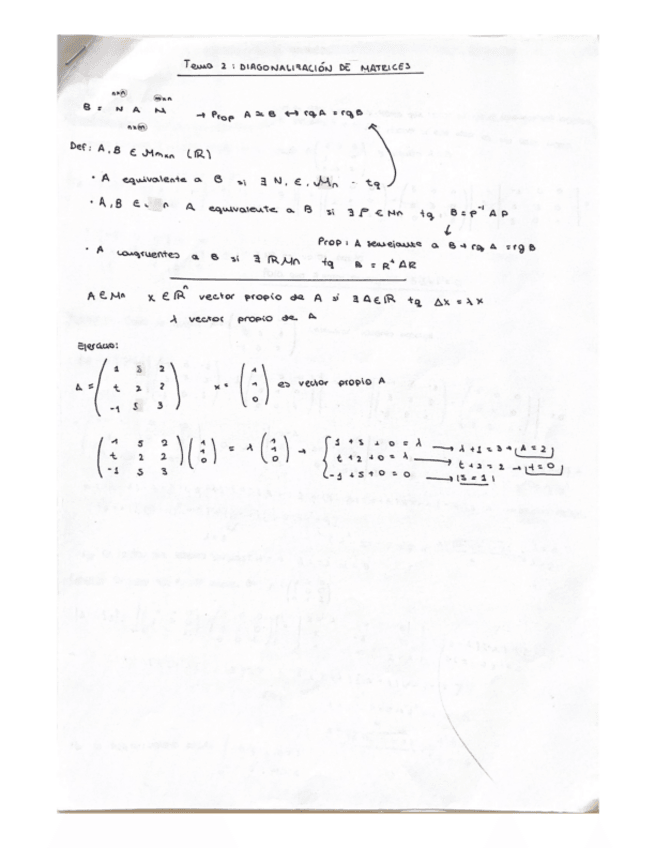 Tema 2: DIAGONALIZACIÓN DE MATRICES
B = N A M → Prop A ≃ B ↔ rgA = rgB
Def: A, B ∈ Mmxn (ℝ)
· A equivalente a B si ∃ N, ∈, Mn - tq
· A, B ∈ A equivalente a B si ∃ P ∈ Mn tq B = P⁻¹ A P
Prop: A semejante a B → rg A = rg B
· A congruentes a B si ∃ R Mn tq B = Rᵗ A R
A ∈ Mn x ∈ ℝⁿ vector propio de A si ∃ λ ∈ ℝ tq Ax = λx
λ vector propio de A
Ejercicio:
A = ( 1 s 2 ; t 2 2 ; -1 s 3 ) x = ( 1 ; 1 ; 0 ) es vector propio A
( 1 s 2 ; t 2 2 ; -1 s 3 ) ( 1 ; 1 ; 0 ) = λ ( 1 ; 1 ; 0 ) →
1 + s + 0 = λ
t + 2 + 0 = λ → t + 2 = 2 → t = 0
-1 + s + 0 = 0 → s = 1